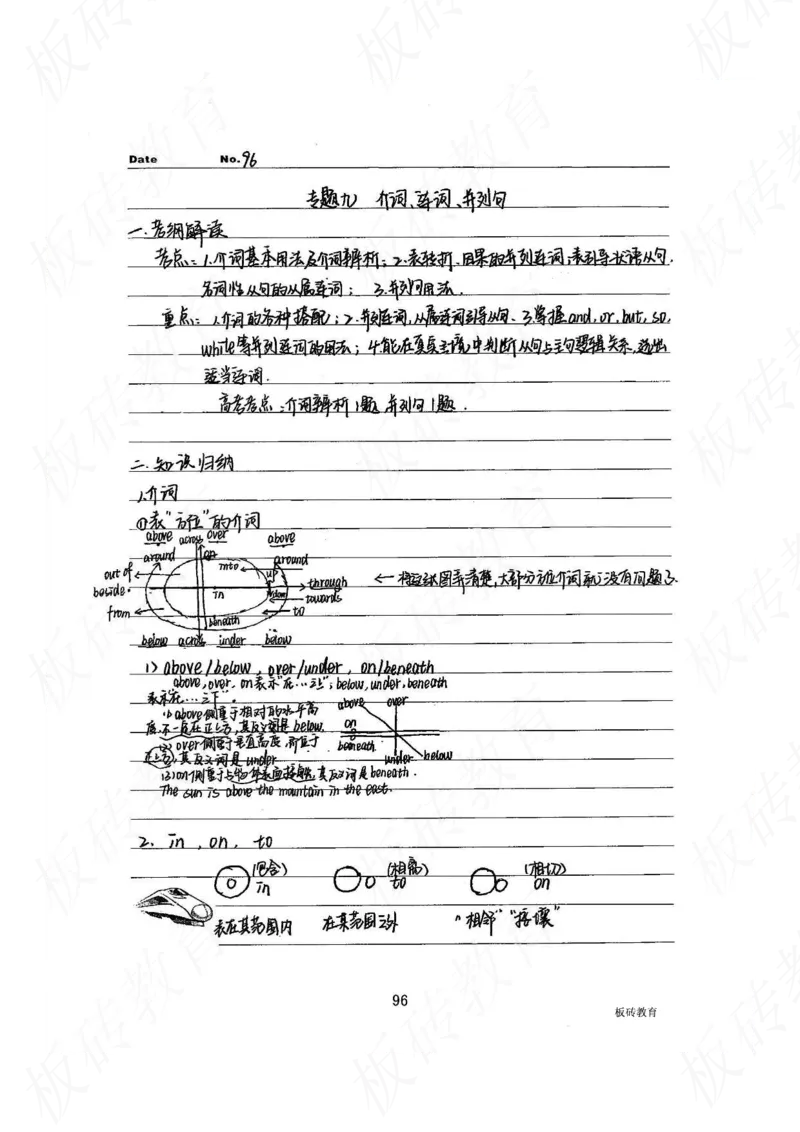 Date No. 96
专题九 介词、连词、并列句
一. 考纲解读
考点: 1.介词基本用法及介词辨析; 2.表转折、因果的并列连词,表引导状语从句.
名词性从句的从属连词; 3.并列句用法.
重点: 1.介词的各种搭配; 2.并列连词,从属连词引导从句、3.掌握and, or, but, so,
while等并列连词的用法; 4.能在真实语境中判断从句与主句逻辑关系,选出
适当连词.
高考考点:介词辨析1题,并列句1题.
二. 知识归纳
1.介词
①表“方位”的介词
above across over above
around on into up around
out of
beside in down through
towards
from beneath to
← 把这张图弄清楚,大部分方位介词就没有问题了.
below across under below
1) above/below , over/under , on/beneath
above, over, on表示“在…之上”; below, under, beneath
表示“在…之下”.
(1) above侧重于相对的水平高
度,不一定在正上方,其反义词是below.
(2) over侧重于垂直高度,即位于
正上方,其反义词是under
(3) on侧重于与物体表面接触,其反义词是beneath.
The sun is above the mountain in the east.
above over
on
beneath
under below
2. in , on , to
(包含) in (相离) to (相切) on
表在某范围内 在某范围之外 “相邻”“接壤”
96
板砖教育